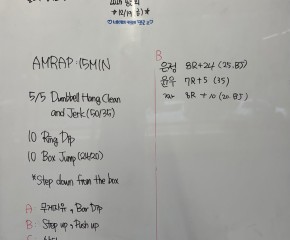 *12/19(금)*
AMRAP : 15MIN
5/5 Dumbbell Hang Clean
and Jerk (50/35)
10 Ring Dip
10 Box Jump (24/20)
*Step down from the box
A : 무게자유, Bar Dip
B : Step up, Push up
C :
B
은정 8R+24 (25.BJ)
윤우 7R+5 (35)
8R +10 (20.BJ)